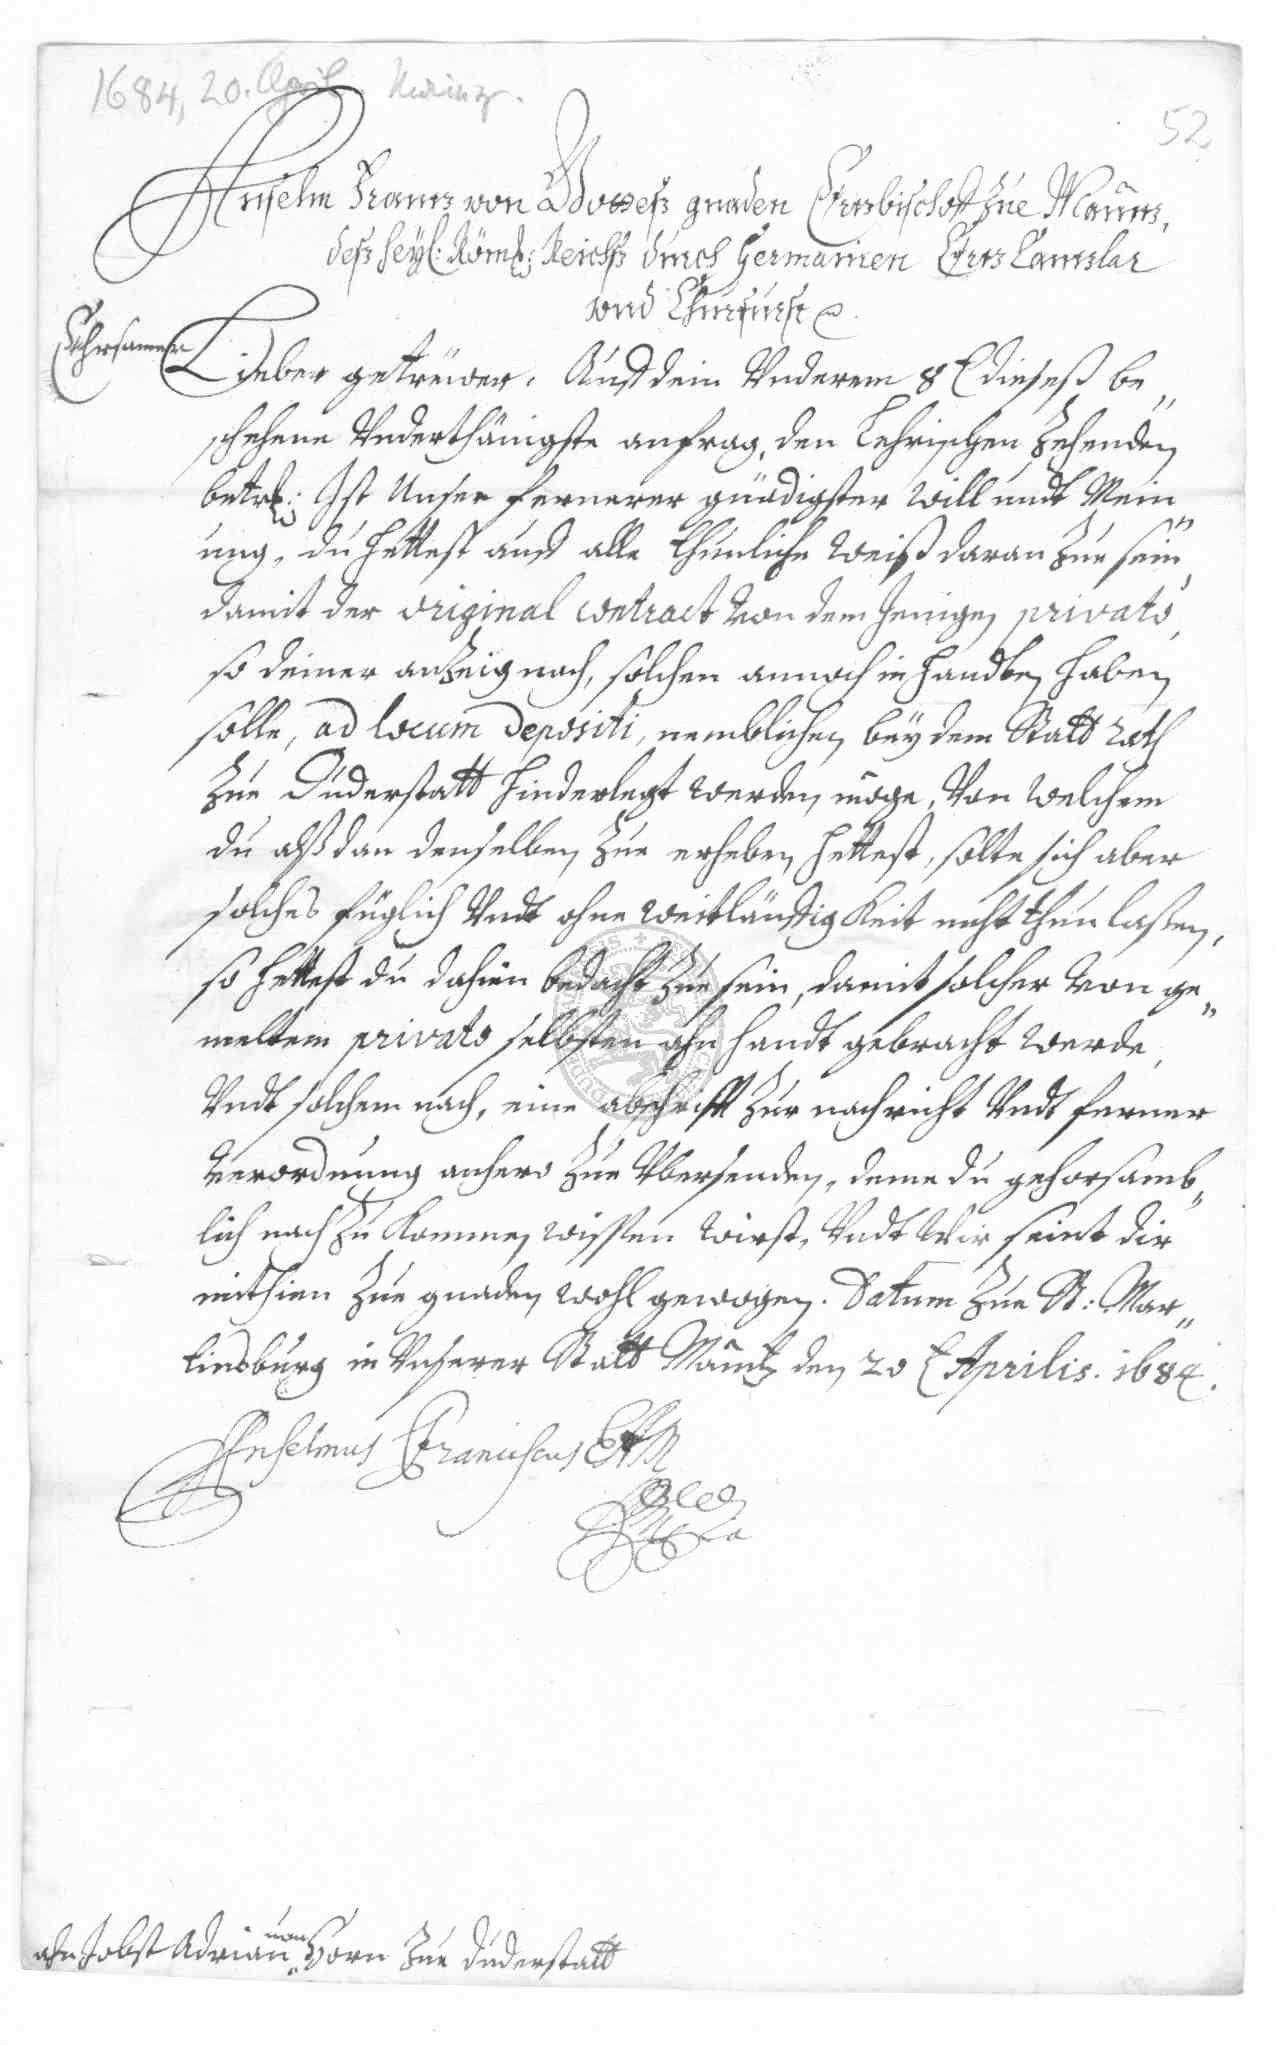 1684, 20. April Mainz.
52
Anselm Frantz von Gottes gnaden Ertzbischoff zue Maintz,
deß heyl: Röm: Reichß durch Germanien Ertz Cantzlar
vnd Churfürst
Ehrsamer
Lieber getreüwer. Auß dein Vnderem 8 t dieseß be„
schehene Vnderthänigste anfrag, den Lehrischen Zehenden
betrl: Ist Unser fernerer gnädigster will undt Mein„
ung, du hettest auf alle thunliche weiß daran zue sein,
damit der original contract von dem Jenigen privato,
so deiner anzeig nach, solchen annoch in handten haben
solle, ad locum depositi, nemblichen bey dem Statt rath
zue Duderstatt hinderlegt werden möge, Von welchem
du alßdan denselben zue erheben hettest, solte sich aber
solches füglich Vndt ohne weitläuffigkeit nicht thun laßen,
so hettest du dahien bedacht zue sein, damit solcher von ge„
meltem privato selbsten ahn handt gebracht werde,
Vndt solchem nach, eine abschrifft zur nachricht Vndt ferner
Verordnung anhero zue Vbersenden, deme du gehorsamb„
lich nach zu kommen wissen wirst, Vndt Wir seint dir
mithien zue gnaden wohl gewogen. Datum zue St: Mar„
tinsburg in Vnserer Statt Maintz den 20 t Aprilis. 1684.
Anselmus Franciscus
ahn Jobst Adrian von Horn zue Duderstatt